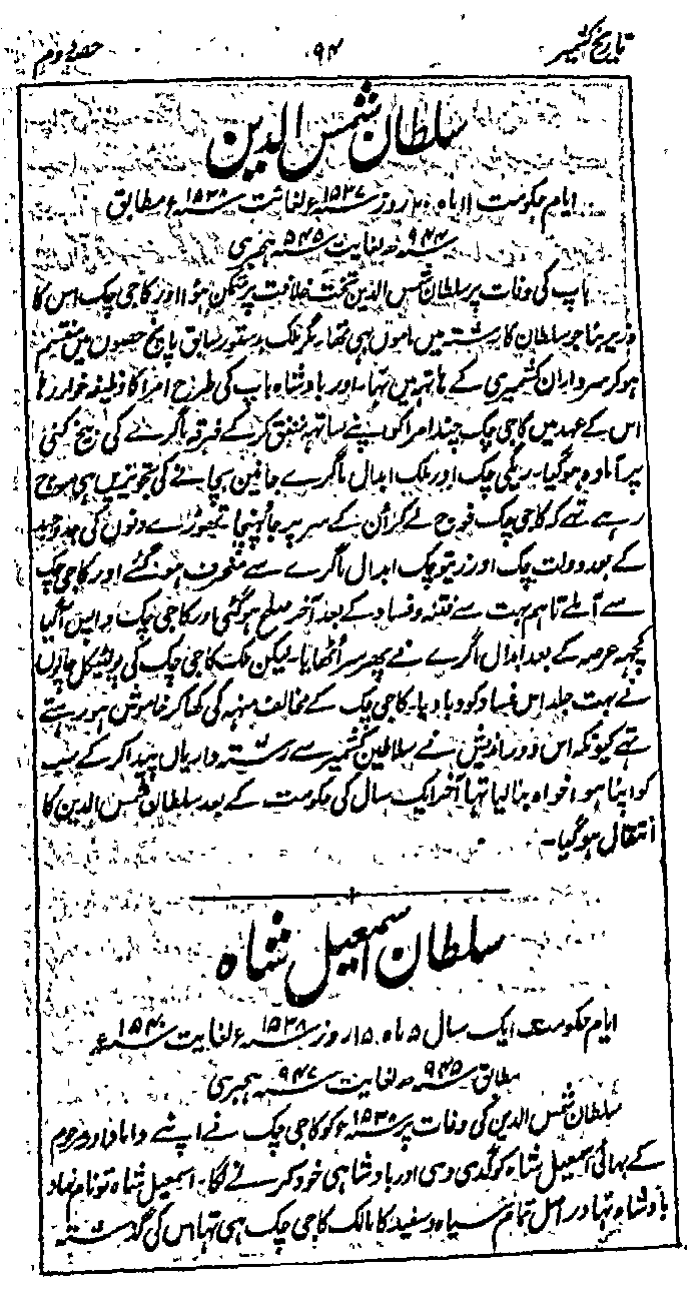 تاریخ کشمیر ۹۴ حصہ دوم
سلطان شمس الدین
ایام حکومت ۱۱ماہ ۲۰روز ۱۵۳۷ء لغایت ۱۵۳۸ء مطابق
۹۴۴ھ لغایت ۵۴۵ ہجری
باپ کی وفات پر سلطان شمس الدین تخت خلافت پر متمکن ہؤا اور کاجی چک اس کا
وزیر بنا جو سلطان کا رشتہ میں ماموں ہی تھا۔ مگر ملک بدستور سابق پانچ حصوں میں منقسم
ہو کر سرداران کشمیری کے ہاتہہ میں تہا۔ اور بادشاہ باپ کی طرح امرا کا وظیفہ خوار رہا
اس کے عہد میں کاجی چک چند امرا کو اپنے ساتہہ متفق کر کے فرقہ ماگرے کی بیخ کنی
پر آمادہ ہوگیا۔ ریگی چک اور ملک ابدال ماگرے جانین بچانے کی تجویزیں ہی سوچ
رہے تہے کہ کاجی چک فوج لے کر اُن کے سر پر جا پہنچا تھوڑے دنوں کی جدوجہد
کے بعد دولت چک اور زیتو چک ابدال ماگرے سے منحرف ہو گئے اور کاجی چک
سے آملے تاہم بہت سے فتنہ و فساد کے بعد آخر صلح ہو گئی اور کاجی چک واپس آگیا
کچہہ عرصہ کے بعد ابدال ماگرے نے پھر سر اُٹھایا۔ لیکن ملک کاجی چک کی پولٹیکل چالوں
نے بہت جلد اس فساد کو دبا دیا۔ کاجی چک کے مخالف منہہ کی کھا کر خاموش ہو رہتے
تہے کیونکہ اس دور اندیش نے سلاطین کشمیر سے رشتہ داریاں پیدا کر کے سب
کو اپنا ہوا خواہ بنا لیا تہا آخر ایک سال کی حکومت کے بعد سلطان شمس الدین کا
انتقال ہوگیا۔
سلطان اسمعیل شاہ
ایام حکومت ایک سال ۵ماہ ۱۵روز ۱۵۳۸ء لغایت ۱۵۴۰ء
مطابق ۹۴۵ھ لغایت ۹۴۷ ہجری
سلطان شمس الدین کی وفات پر ۱۵۳۸ء کو کاجی چک نے اپنے داماد اور مرحوم
کے بھائی اسمعیل شاہ کو گدی دی اور بادشاہی خود کرنے لگا۔ اسمعیل شاہ تو نام نہاد
بادشاہ تہا در اصل تمام سیاہ و سفید کا مالک کاجی چک ہی تہا اس کی گذشتہ